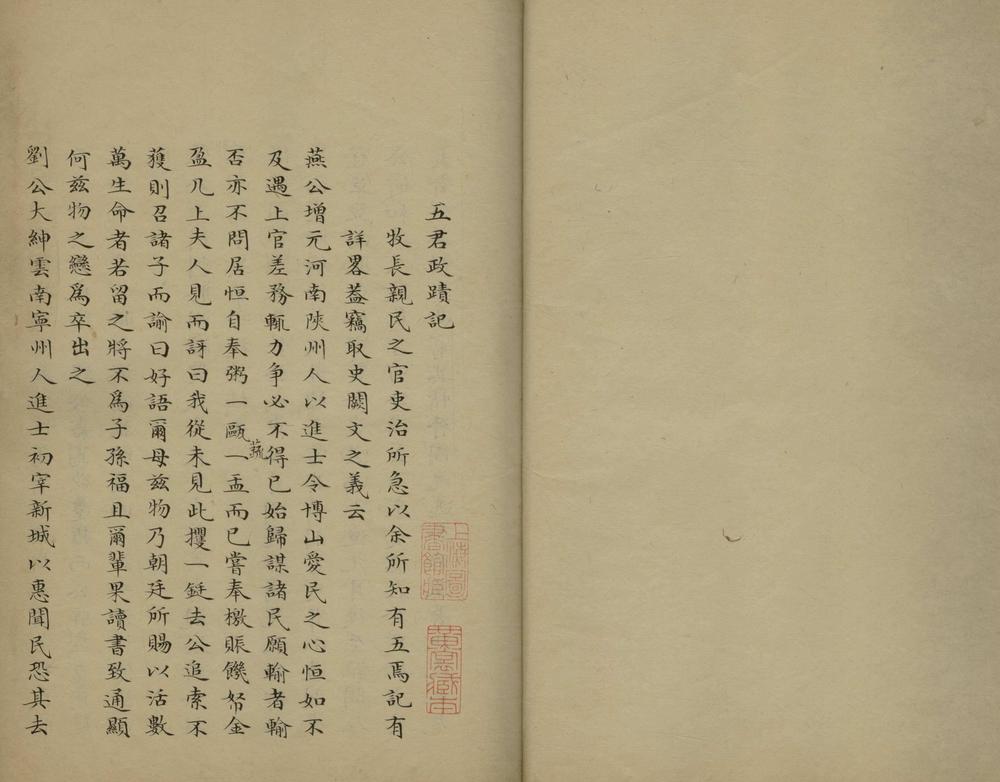 五君政蹟記
牧長親民之官吏治所急以余所知有五焉記有
詳畧葢竊取史闕文之義云
燕公增元河南陝州人以進士令博山愛民之心恒如不
及遇上官差務輒力争必不得已始歸謀諸民願輸者輸
否亦不問居恒自奉粥一甌蔬一盂而已嘗奉檄賑饑帑金
盈几上夫人見而訝曰我從未見此攫一鋌去公追索不
獲則召諸子而諭曰好語爾母茲物乃朝廷所賜以活數
萬生命者若留之將不爲子孫福且爾輩果讀書致通顯
何茲物之戀爲卒出之
劉公大紳雲南寧州人進士初宰新城以惠聞民恐其去
上海圖書館藏
黃裳藏本